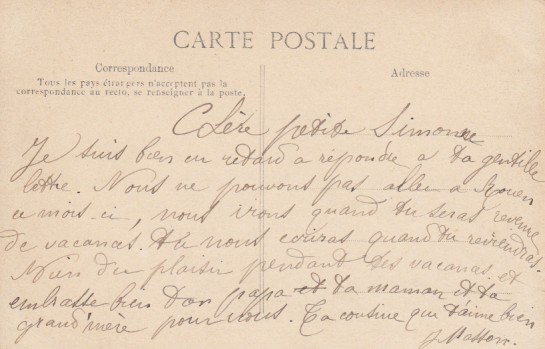 CARTE POSTALE
Correspondance
Tous les pays étrangers n'acceptent pas la
correspondance au recto, se renseigner à la poste.
Adresse
Chère petite Simonne
Je suis bien en retard a répondre a ta gentille
lettre. Nous ne pouvons pas aller a
ce mois-ci, nous irons quand tu seras revenue
de vacances. Tu nous ecriras quand tu reviendras.
du plaisir pendant tes vacances et
embrasse bien ton papa et ta maman et ta
grand'mère pour nous. Ta cousine qui t'aime bien
J. Masson.